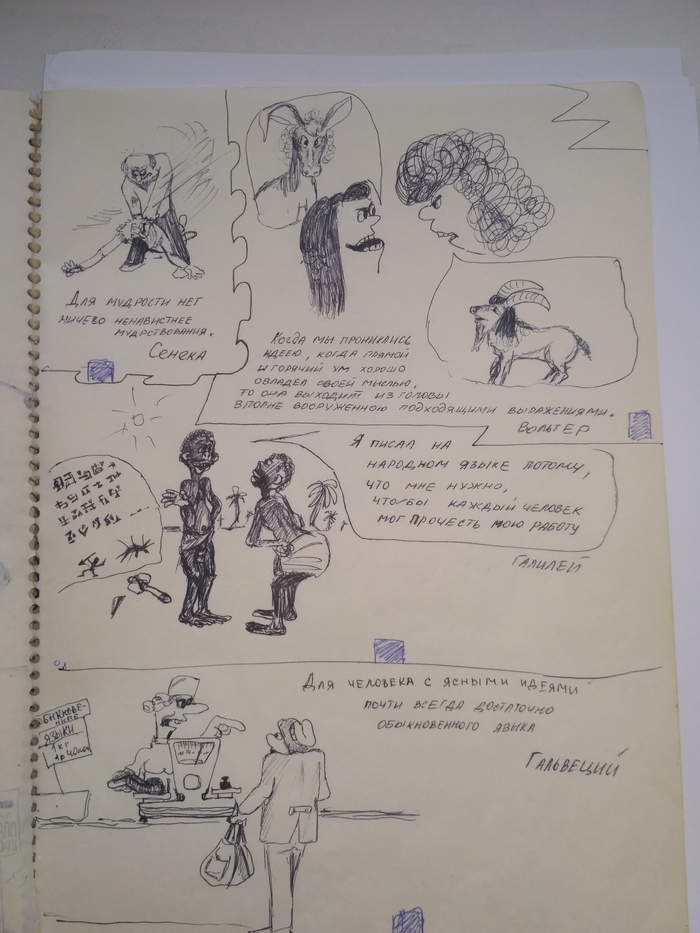 Для мудрости нет
ничево ненавистнее
мудрствования.
Сенека
Когда мы прониклись
идеею, когда прямой
и горячий ум хорошо
овладел своей мыслью,
то она выходит из головы
вполне вооруженною подходящими выражениями.
Вольтер
Я писал на
народном языке потому,
что мне нужно,
чтобы каждый человек
мог прочесть мою работу
Галилей
Для человека с ясными идеями
почти всегда достаточно
обыкновенного языка
Гальвеций
языки
1 кг